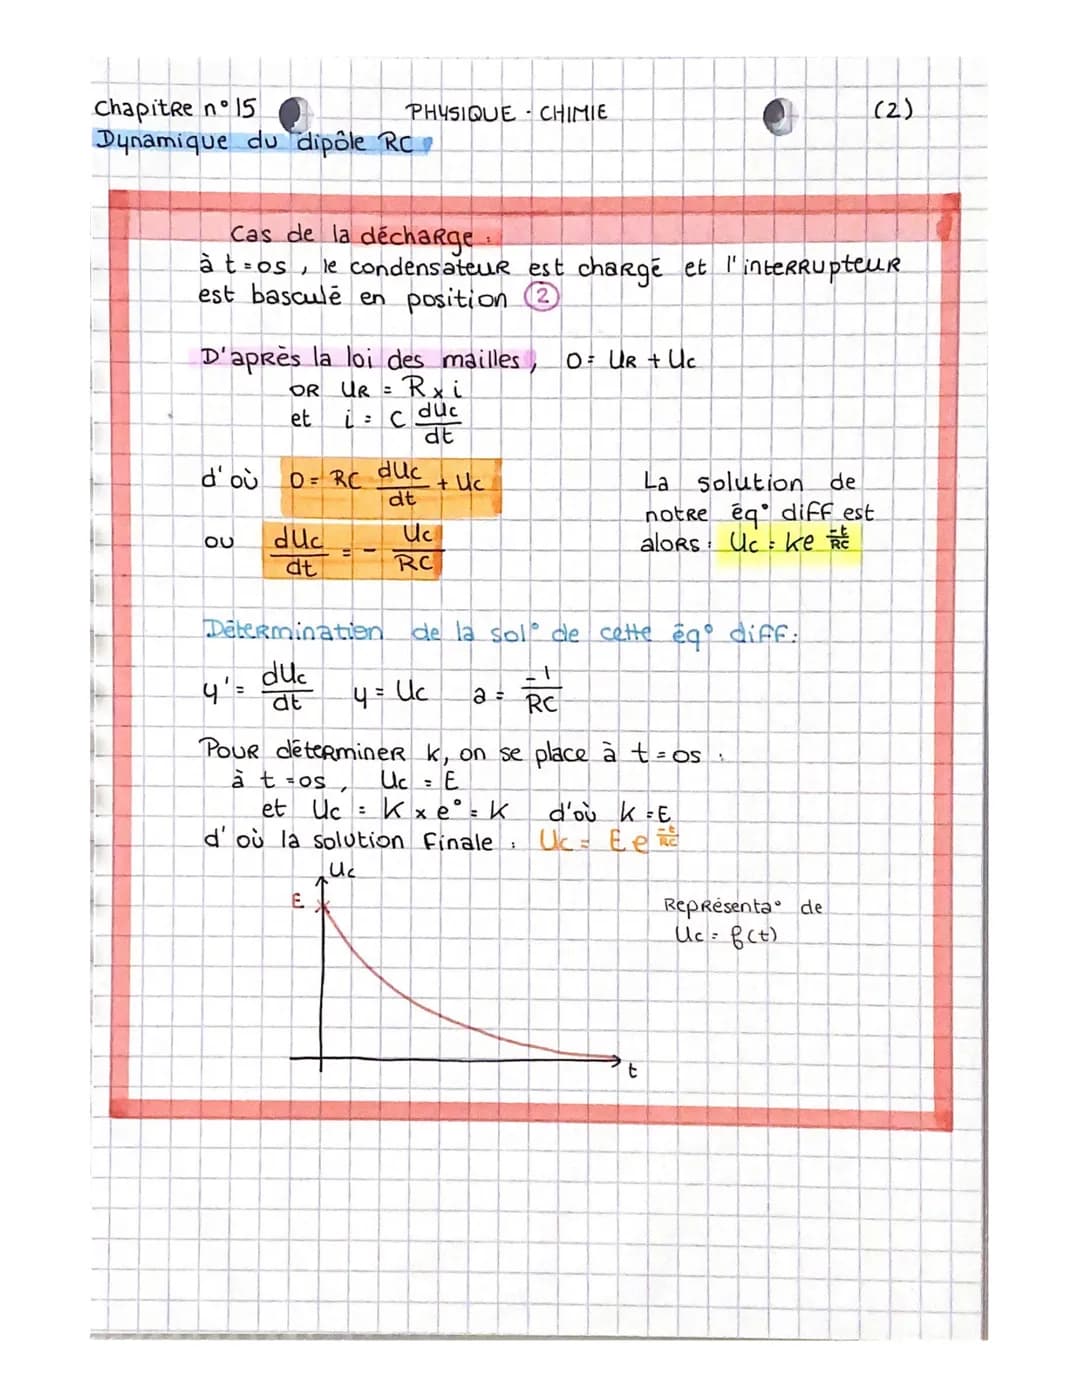 Chapitre n°15 PHYSIQUE - CHIMIE (2)
Dynamique du dipôle RC
Cas de la décharge :
à t=0s, le condensateur est chargé et l'interrupteur
est basculé en position ②
D'après la loi des mailles, 0 = UR + Uc
OR UR = R x i
et i = C dUc/dt
d'où 0 = RC dUc/dt + Uc
ou dUc/dt = - Uc/RC
La solution de
notre éq° diff est
alors : Uc = ke^(-t/RC)
Détermination de la sol° de cette éq° diff :
y' = dUc/dt y = Uc a = -1/RC
Pour déterminer k, on se place à t=0s :
à t=0s, Uc = E
et Uc = K x e° = K d'où k = E
d'où la solution finale : Uc = E e^(-t/RC)
Uc
E
Représenta° de
Uc = f(t)
t